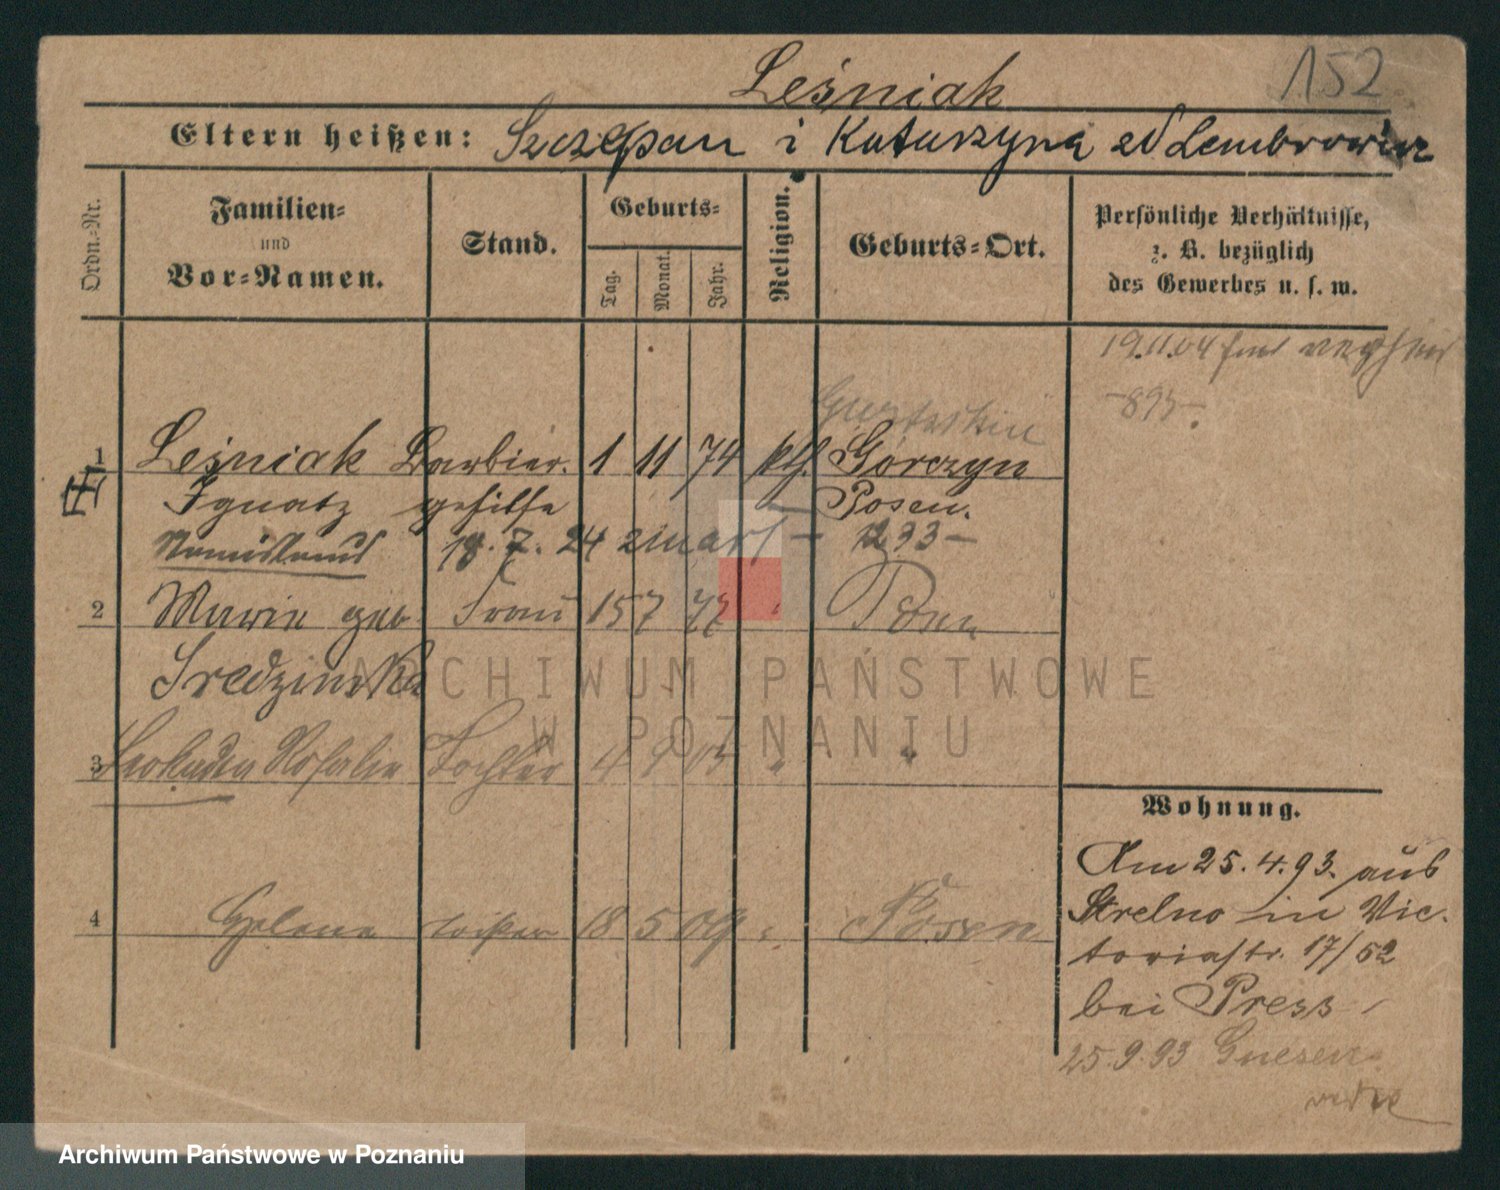 Leśniak
152
Eltern heißen: Szczepan i Katarzyna zd Lembrowicz
Ordn.-Nr.
Familien-
und
Vor-Namen.
Stand.
Geburts-
Tag.
Monat.
Jahr.
Religion.
Geburts-Ort.
Persönliche Verhältnisse,
z. B. bezüglich
des Gewerbes u. s. w.
19.11.04
-895-.
1 Leśniak Barbier. 1 11 74 kth. Górczyn
Ignatz gehilfe Posen.
18.7.24 zmarł - 1233 -
2 Marie geb. Frau 15 7 77 " Posen
Sredzinska
3 Leokadia Rosalie Tochter 4 9 05 " "
4 Helene Tochter 18 5 09 " Posen
Wohnung.
Am 25.4.93. aus
Strelno in Vic-
toriastr. 17/52
bei Press
25.9.93 Gnesen
ARCHIWUM PAŃSTWOWE
W POZNANIU
Archiwum Państwowe w Poznaniu